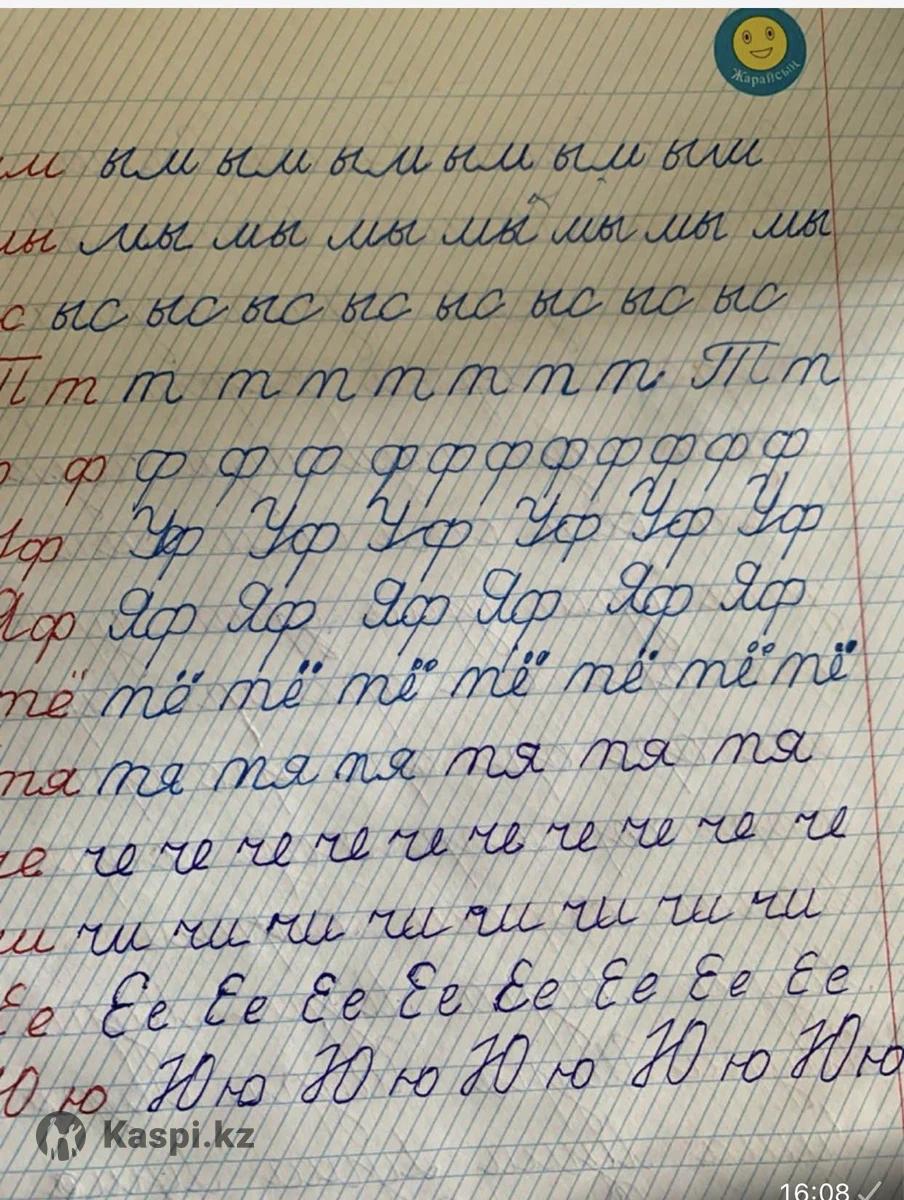 Жарайсың
ым ым ым ым ым ым ым
мы мы мы мы мы мы мы мы
с ыс ыс ыс ыс ыс ыс ыс ыс
Т т т т т т т т т Т т
ф ф ф ф ф ф ф ф ф ф ф ф
Уф Уф Уф Уф Уф Уф Уф
Яф Яф Яф Яф Яф Яф Яф
тё тё тё тё тё тё тё тё
тя тя тя тя тя тя тя
че че че че че че че че че че
чи чи чи чи чи чи чи чи
Ее Ее Ее Ее Ее Ее Ее Ее Ее
Ю ю Ю ю Ю ю Ю ю Ю ю Ю ю
Kaspi.kz
16:08